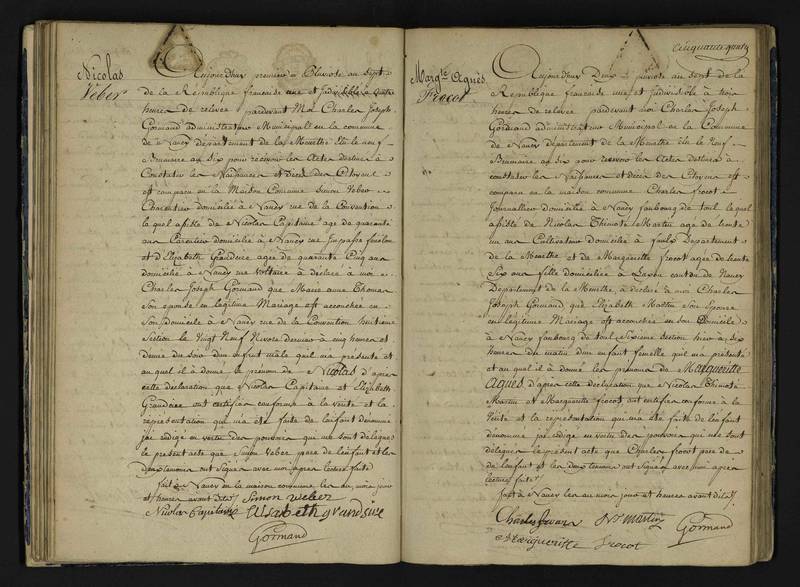 Nicolas
Veber
Aujourd'hui premier Pluviose an Sept
de la République française une et indivisible à quatre
heures de relevée pardevant Moi Charles Joseph
Gormand administrateur Municipal en la commune
de Nancy département de la Meurthe Elu le neuf
Brumaire an six pour recevoir les Actes destinés à
Constater les Naissances et Décès des Citoyens
est comparu en la Maison Commune Simon Veber
Charpentier domicilié à Nancy rue de la Convention
lequel assisté de Nicolas Capitaine agé de quarante
ans domicilié à Nancy rue
et d'Elizabeth agée de quarante Cinq ans
domiciliée à Nancy rue Voltaire à déclaré à moi
Charles Joseph Gormand que Marie anne Thomas
Son epouse en légitime Mariage est accouchée en
Son domicile à Nancy rue de la Convention huitieme
Section le Vingt Neuf Nivose dernier à cinq heures et
demie du soir d'un enfant male qu'il m'a présenté et
au quel il à donné le prénom de Nicolas d'apres
cette déclaration que Nicolas Capitaine et Elizabeth
ont certifiée conforme à la vérité et la
représentation qui m'a été faite de l'enfant dénommé
j'ai rédigé en vertu des pouvoirs qui me sont délégués
le présent acte que Simon Veber pere de l'enfant et les
deux temoins ont Signés avec moi apres lecture faite
fait à Nancy en la maison commune les an mois jour
et heures avant dits
Simon Weber
Nicolas Capitaine Elisabeth grandsire
Gormand
cinquante
Margte Agnès
Frocot
Aujourd'hui Deux Pluviose an Sept de la
République française une et indivisible à trois
heures de relevée pardevant moi Charles Joseph
Gormand administrateur Municipal en la Commune
de Nancy Département de la Meurthe Elu le neuf
Brumaire an Six pour recevoir les Actes destinés à
constater les Naissances et décès des Citoyens est
comparu en la maison commune Charles frocot
Journallier domicilié à Nancy faubourg de toul lequel
assisté de Nicolas Martin agé de trente
un ans Cultivateur domicilié à Département
de la Meurthe et de Margueritte frocot agée de trente
Six ans fille domiciliée à canton de Nancy
Département de la Meurthe, à déclaré à moi Charles
Joseph Gormand que Elizabeth Martin Son épouse
en légitime Mariage est accouchée en son domicile
à Nancy faubourg de toul Sixieme Section hier à six
heures du matin d'un enfant femelle qu'il m'a présenté
et au quel il à donné les prénoms de Margueritte
Agnes d'apres cette déclaration que Nicolas
Martin et Margueritte frocot ont certifiée conforme à la
Vérité et la représentation qui m'a été faite de l'enfant
dénommé j'ai rédigé en vertu des pouvoirs qui me sont
délégués le présent acte que Charles frocot pere de
l'enfant et les deux temoins ont Signés avec moi apres
lecture faite
fait à Nancy les an mois jour et heures avant dits
Charles N. Martin Gormand
Margueritte Frocot